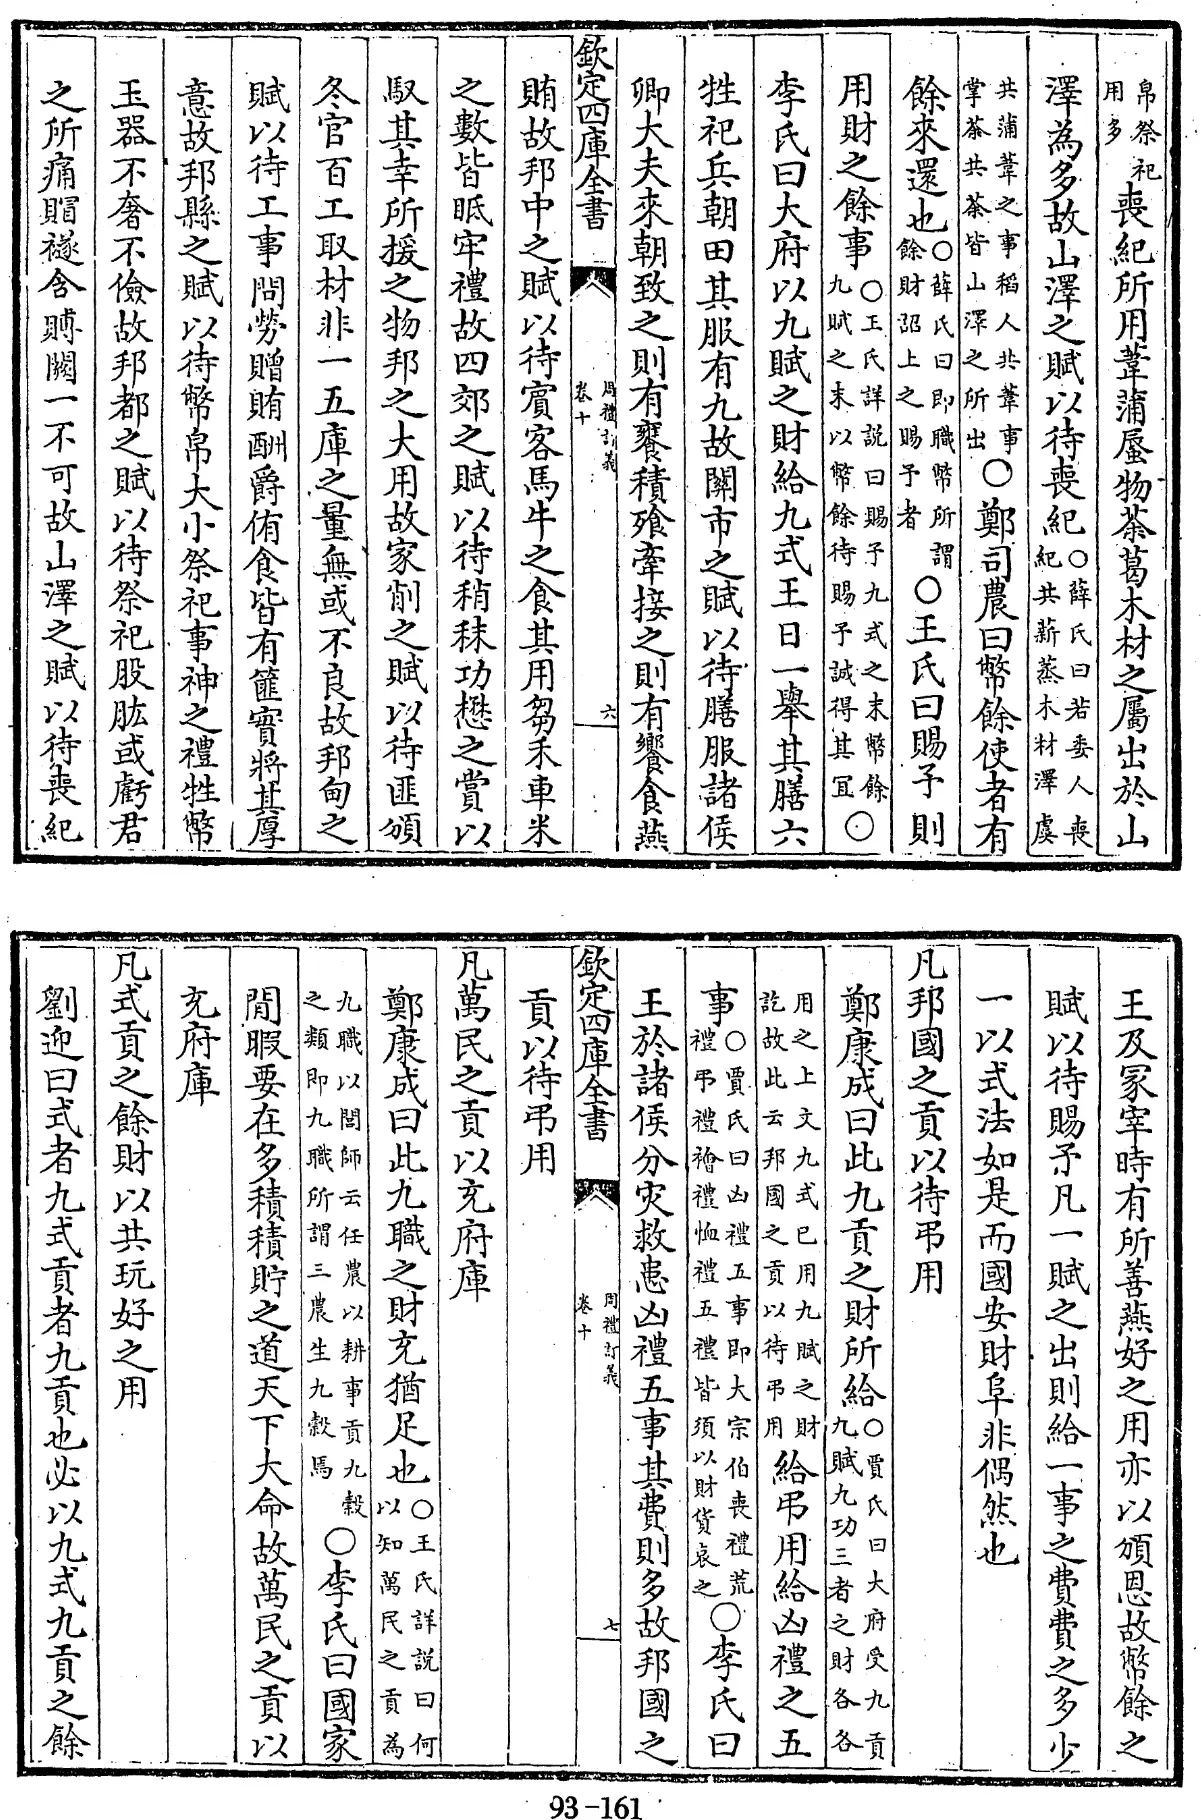 帛祭祀
用多
喪紀所用葦蒲蜃物荼葛木材之屬出於山
澤為多故山澤之賦以待喪紀
○薛氏曰若委人喪
紀共薪蒸木材澤虞
共蒲葦之事稻人共葦事
掌荼共荼皆山澤之所出
○鄭司農曰幣餘使者有
餘來還也
○薛氏曰即職幣所謂
餘財詔上之賜予者
○王氏曰賜予則
用財之餘事
○王氏詳說曰賜予九式之末幣餘
九賦之末以幣餘待賜予誠得其冝
○
李氏曰大府以九賦之財給九式王日一舉其膳六
牲祀兵朝田其服有九故關市之賦以待膳服諸侯
卿大夫來朝致之則有饔積飱牽接之則有饗食燕
欽定四庫全書
周禮訂義
卷十
六
賄故邦中之賦以待賓客馬牛之食其用芻禾車米
之數皆眡牢禮故四郊之賦以待稍秣功懋之賞以
馭其幸所援之物邦之大用故家削之賦以待匪頒
冬官百工取材非一五庫之量無或不良故邦甸之
賦以待工事問勞贈賄酬爵侑食皆有篚實將其厚
意故邦縣之賦以待幣帛大小祭祀事神之禮牲幣
玉器不奢不儉故邦都之賦以待祭祀股肱或虧君
之所痛賵襚含賻闕一不可故山澤之賦以待喪紀
王及冢宰時有所善燕好之用亦以頒恩故幣餘之
賦以待賜予凡一賦之出則給一事之費費之多少
一以式法如是而國安財阜非偶然也
凡邦國之貢以待弔用
鄭康成曰此九貢之財所給
○賈氏曰大府受九貢
九賦九功三者之財各各
用之上文九式已用九賦之財
訖故此云邦國之貢以待弔用
給弔用給凶禮之五
事
○賈氏曰凶禮五事即大宗伯喪禮荒
禮弔禮禬禮恤禮五禮皆須以財貨哀之
○李氏曰
王於諸侯分灾救患凶禮五事其費則多故邦國之
欽定四庫全書
周禮訂義
卷十
七
貢以待弔用
凡萬民之貢以充府庫
鄭康成曰此九職之財充猶足也
○王氏詳說曰何
以知萬民之貢為
九職以閭師云任農以耕事貢九穀
之類即九職所謂三農生九穀焉
○李氏曰國家
閒暇要在多積積貯之道天下大命故萬民之貢以
充府庫
凡式貢之餘財以共玩好之用
劉迎曰式者九式貢者九貢也必以九式九貢之餘
93-161